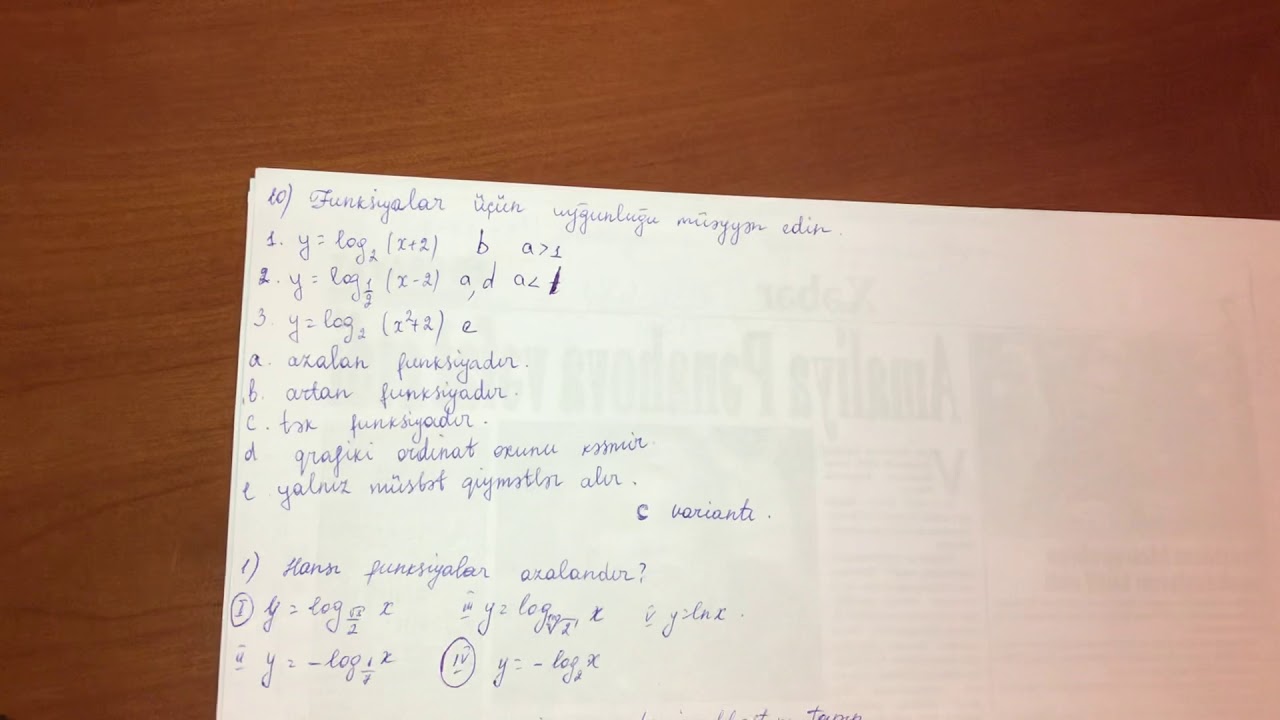 20) Funksiyalar üçün uyğunluğu müəyyən edin.
1. y = log₂ (x+2) b a>1
2. y = log_{1/2} (x-2) a,d a<1
3. y = log₂ (x²+2) e
a. azalan funksiyadır.
b. artan funksiyadır.
c. tək funksiyadır.
d qrafiki ordinat oxunu kəsmir.
e yalnız müsbət qiymətlər alır.
C variantı.
1) Hansı funksiyalar azalandır?
I y = log_{√3/2} x III y = log x V y = lnx.
II y = -log_{1/7} x IV y = -log₂x
Xəbər
Amaliya Pənahova